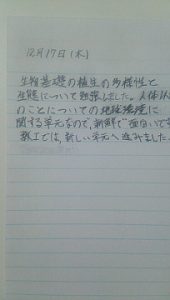 12月17日(木)
生物基礎の植生の多様性と
生態について勉強しました。人体以
のことについての地球環境に
関する単元なので、新鮮で面白いです
数Iでは、新しい単元へ進みました。